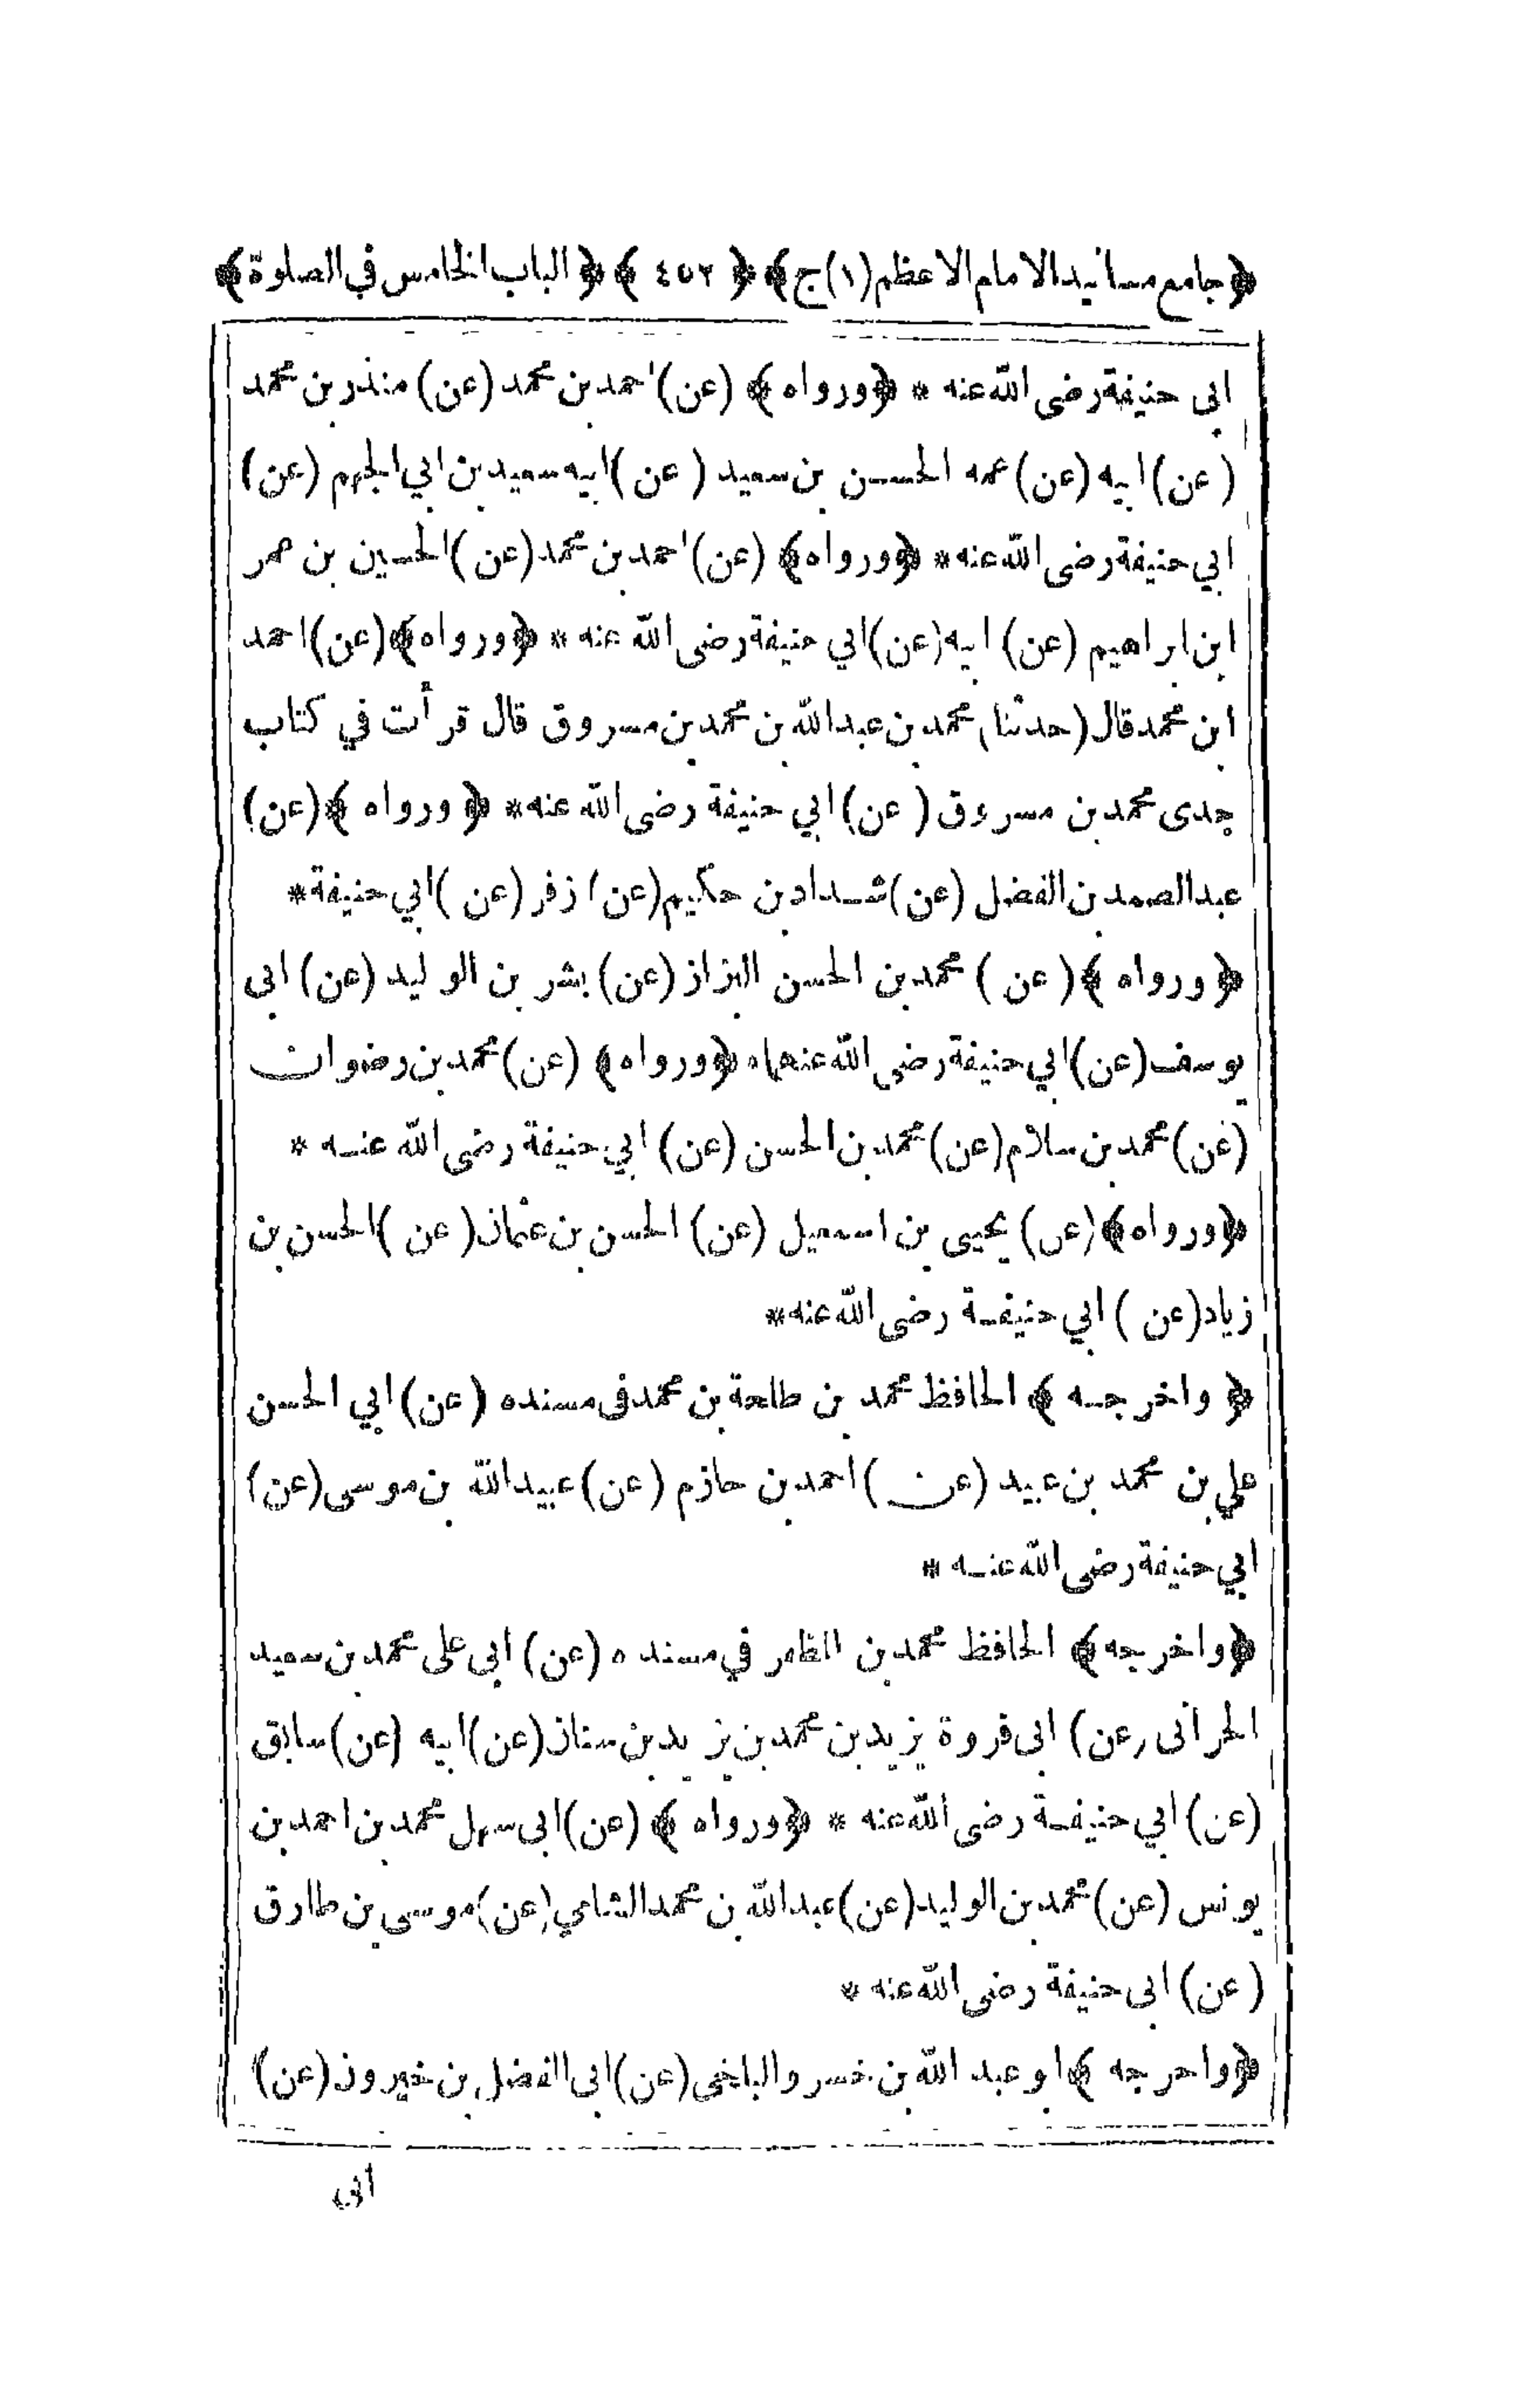 ﴿جامع مسانيد الامام الاعظم (١) ج﴾ ﴿ ٤٥٢ ﴾ ﴿ الباب الخامس في الصلوة﴾
ابى حنيفة رضى الله عنه * ﴿ورواه﴾ (عن) احمد بن محمد (عن) منذر بن محمد
(عن) ابيه (عن) عمه الحسن بن سعيد (عن) ابيه سعيد بن ابي الجهم (عن)
ابي حنيفة رضى الله عنه * ﴿ورواه﴾ (عن) احمد بن محمد (عن) الحسين بن عمر
ابن ابراهيم (عن) ابيه (عن) ابي حنيفة رضى الله عنه * ﴿ورواه﴾ (عن) احمد
ابن محمد قال (حدثنا) محمد بن عبد الله بن محمد بن مسروق قال قرأت في كتاب
جدى محمد بن مسروق (عن) ابي حنيفة رضى الله عنه * ﴿ورواه﴾ (عن)
عبد الصمد بن الفضل (عن) شداد بن حكيم (عن) زفر (عن) ابي حنيفة *
﴿ورواه﴾ (عن) محمد بن الحسن البزاز (عن) بشر بن الوليد (عن) ابى
يوسف (عن) ابي حنيفة رضى الله عنهما * ﴿ورواه﴾ (عن) محمد بن رضوان
(عن) محمد بن سلام (عن) محمد بن الحسن (عن) ابي حنيفة رضى الله عنه *
﴿ورواه﴾ (عن) يحيى بن اسمعيل (عن) الحسن بن عثمان (عن) الحسن بن
زياد (عن) ابي حنيفة رضى الله عنه *
﴿واخرجه﴾ الحافظ محمد بن طلحة بن محمد فى مسنده (عن) ابي الحسن
علي بن محمد بن عبيد (عن) احمد بن حازم (عن) عبيد الله بن موسى (عن)
ابي حنيفة رضى الله عنه *
﴿واخرجه﴾ الحافظ محمد بن المظفر في مسنده (عن) ابى على محمد بن سعيد
الحرانى (عن) ابى فروة يزيد بن محمد بن يزيد بن سنان (عن) ابيه (عن) سابق
(عن) ابي حنيفة رضى الله عنه * ﴿ورواه﴾ (عن) ابى سهل محمد بن احمد بن
يونس (عن) محمد بن الوليد (عن) عبد الله بن محمد الشامي (عن) موسى بن طارق
(عن) ابى حنيفة رضى الله عنه *
﴿واخرجه﴾ ابو عبد الله بن خسرو البلخى (عن) ابى الفضل بن خيرون (عن)
ابى